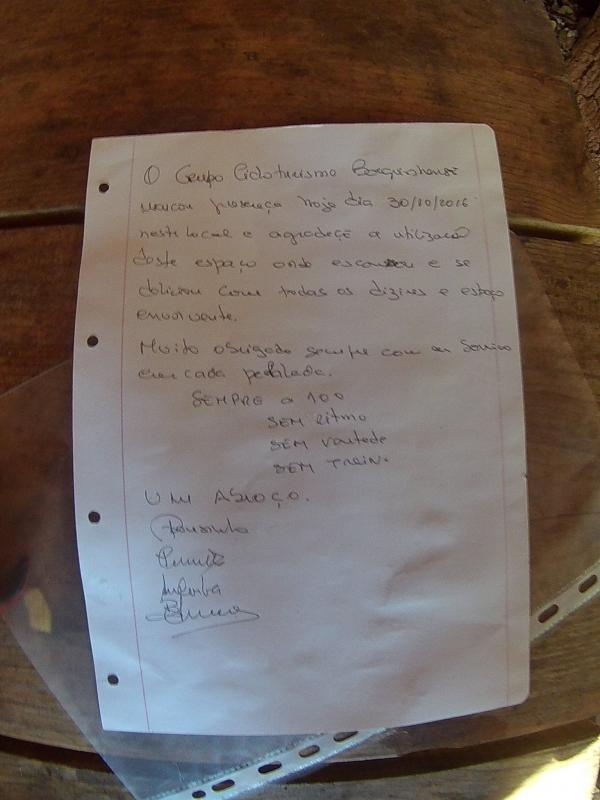 O Grupo Cicloturismo
marcou presença hoje dia 30/10/2016
neste local e agradeçe a utilização
deste espaço onde e se
deliciou com todas os dizeres e espaço
envolvente.
Muito obrigado sempre com um sorriso
em cada pedalada.
SEMPRE a 100
SEM Ritmo
SEM Vontade
SEM TREINO
UM ABRAÇO.